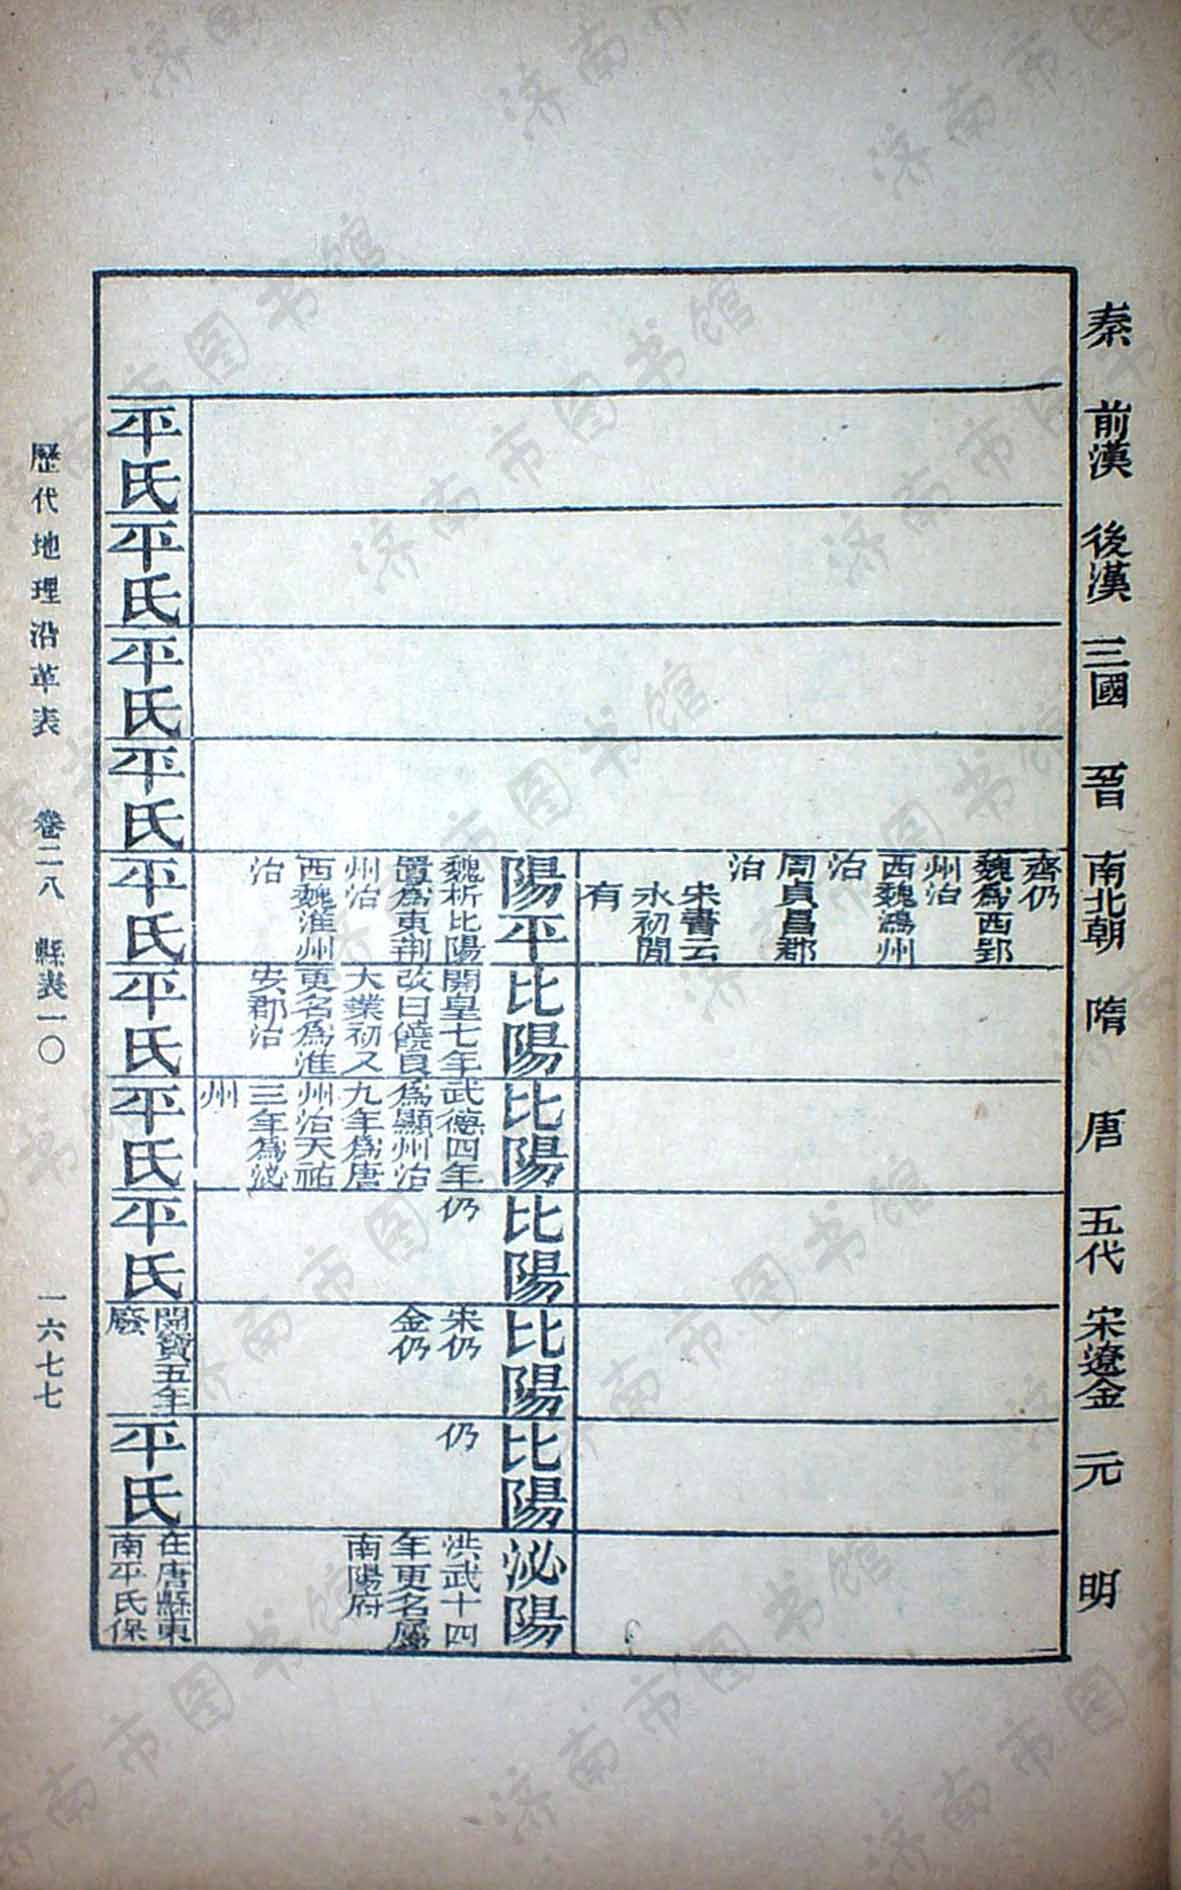 秦
前漢
後漢
三國
晉
南北朝
隋
唐
五代
宋遼金
元
明
齊仍
魏爲西郢
州治
西魏鴻州
治
周真昌郡
治
宋書云
永初閒
有
陽平
魏析比陽
置爲東荆
州治
西魏淮州
治
比陽
開皇七年
改曰饒良
大業初又
更名爲淮
安郡治
比陽
武德四年
爲顯州治
九年爲唐
州治天祐
三年爲泌
州
比陽
仍
比陽
宋仍
金仍
比陽
仍
泌陽
洪武十四
年更名屬
南陽府
平氏
平氏
平氏
平氏
平氏
平氏
平氏
平氏
開寶五年
廢
平氏
在唐縣東
南平氏保
歷代地理沿革表 卷二八 縣表一〇 一六七七
济南市图书馆